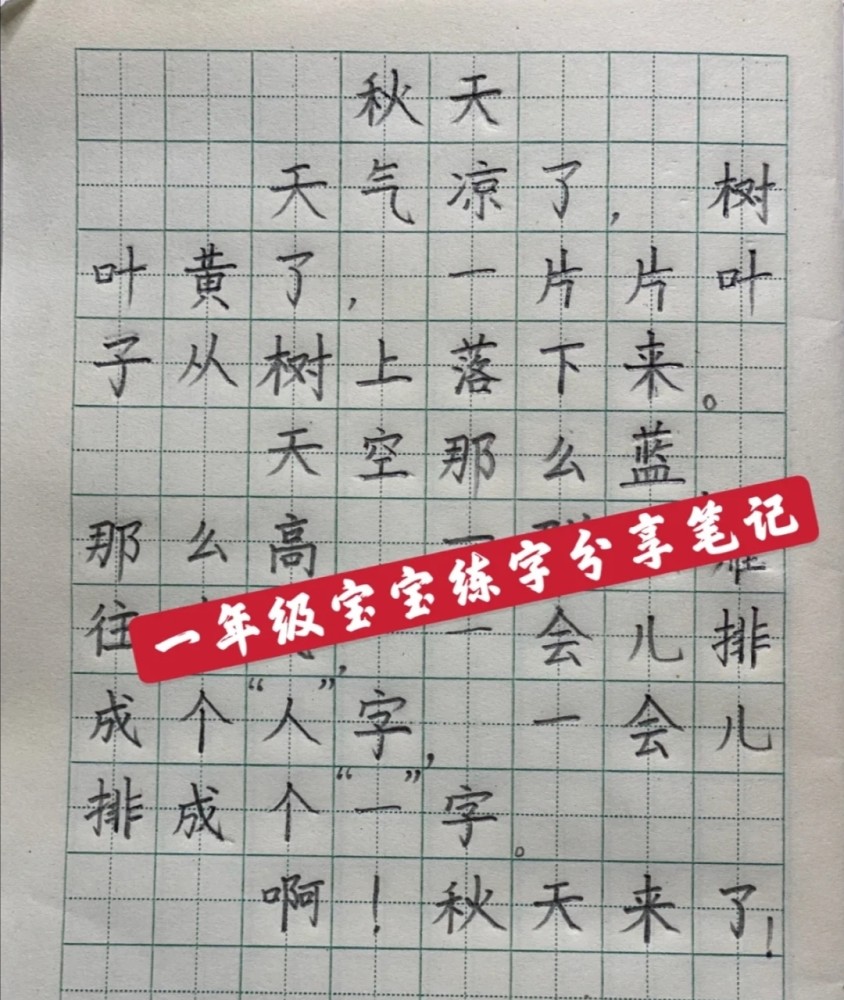 秋天
天气凉了，树
叶黄了，一片片叶
子从树上落下来。
天空那么蓝
那么高
往 一会儿排
成个“人”字，一会儿
排成个“一”字。
啊！秋天来了！
一年级宝宝练字分享笔记